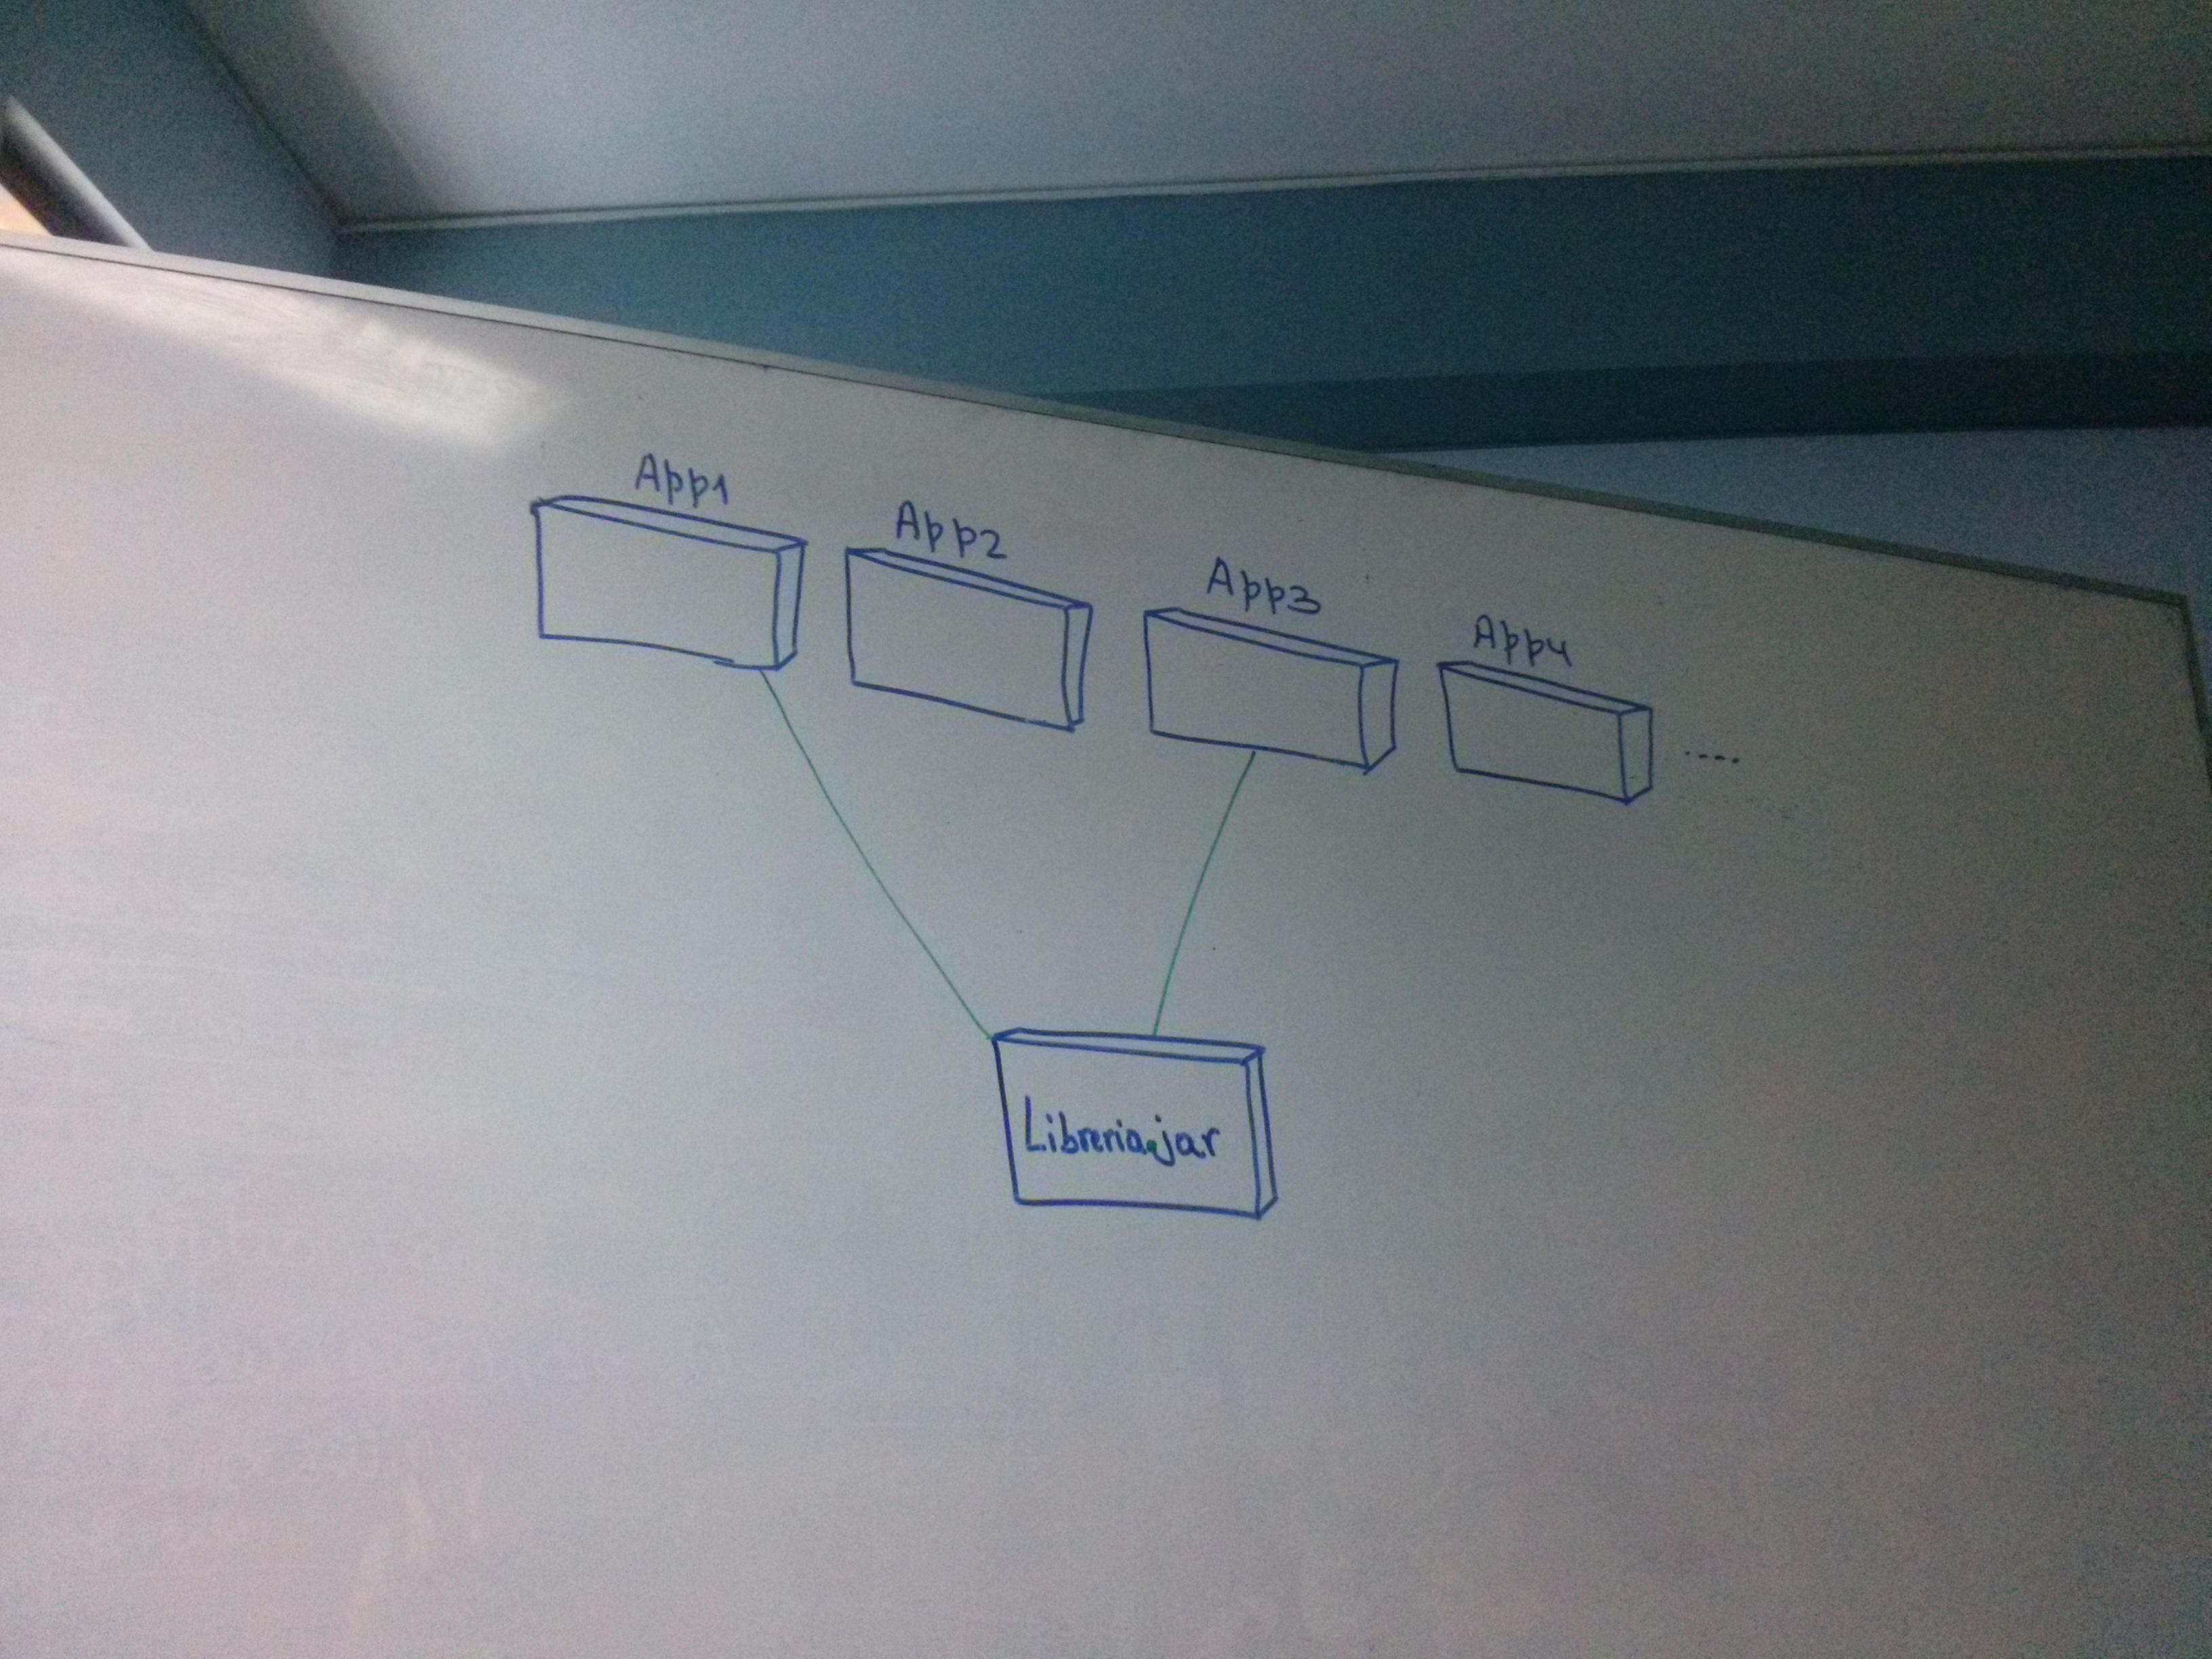 App1
App2
App3
App4
.....
Libreria.jar